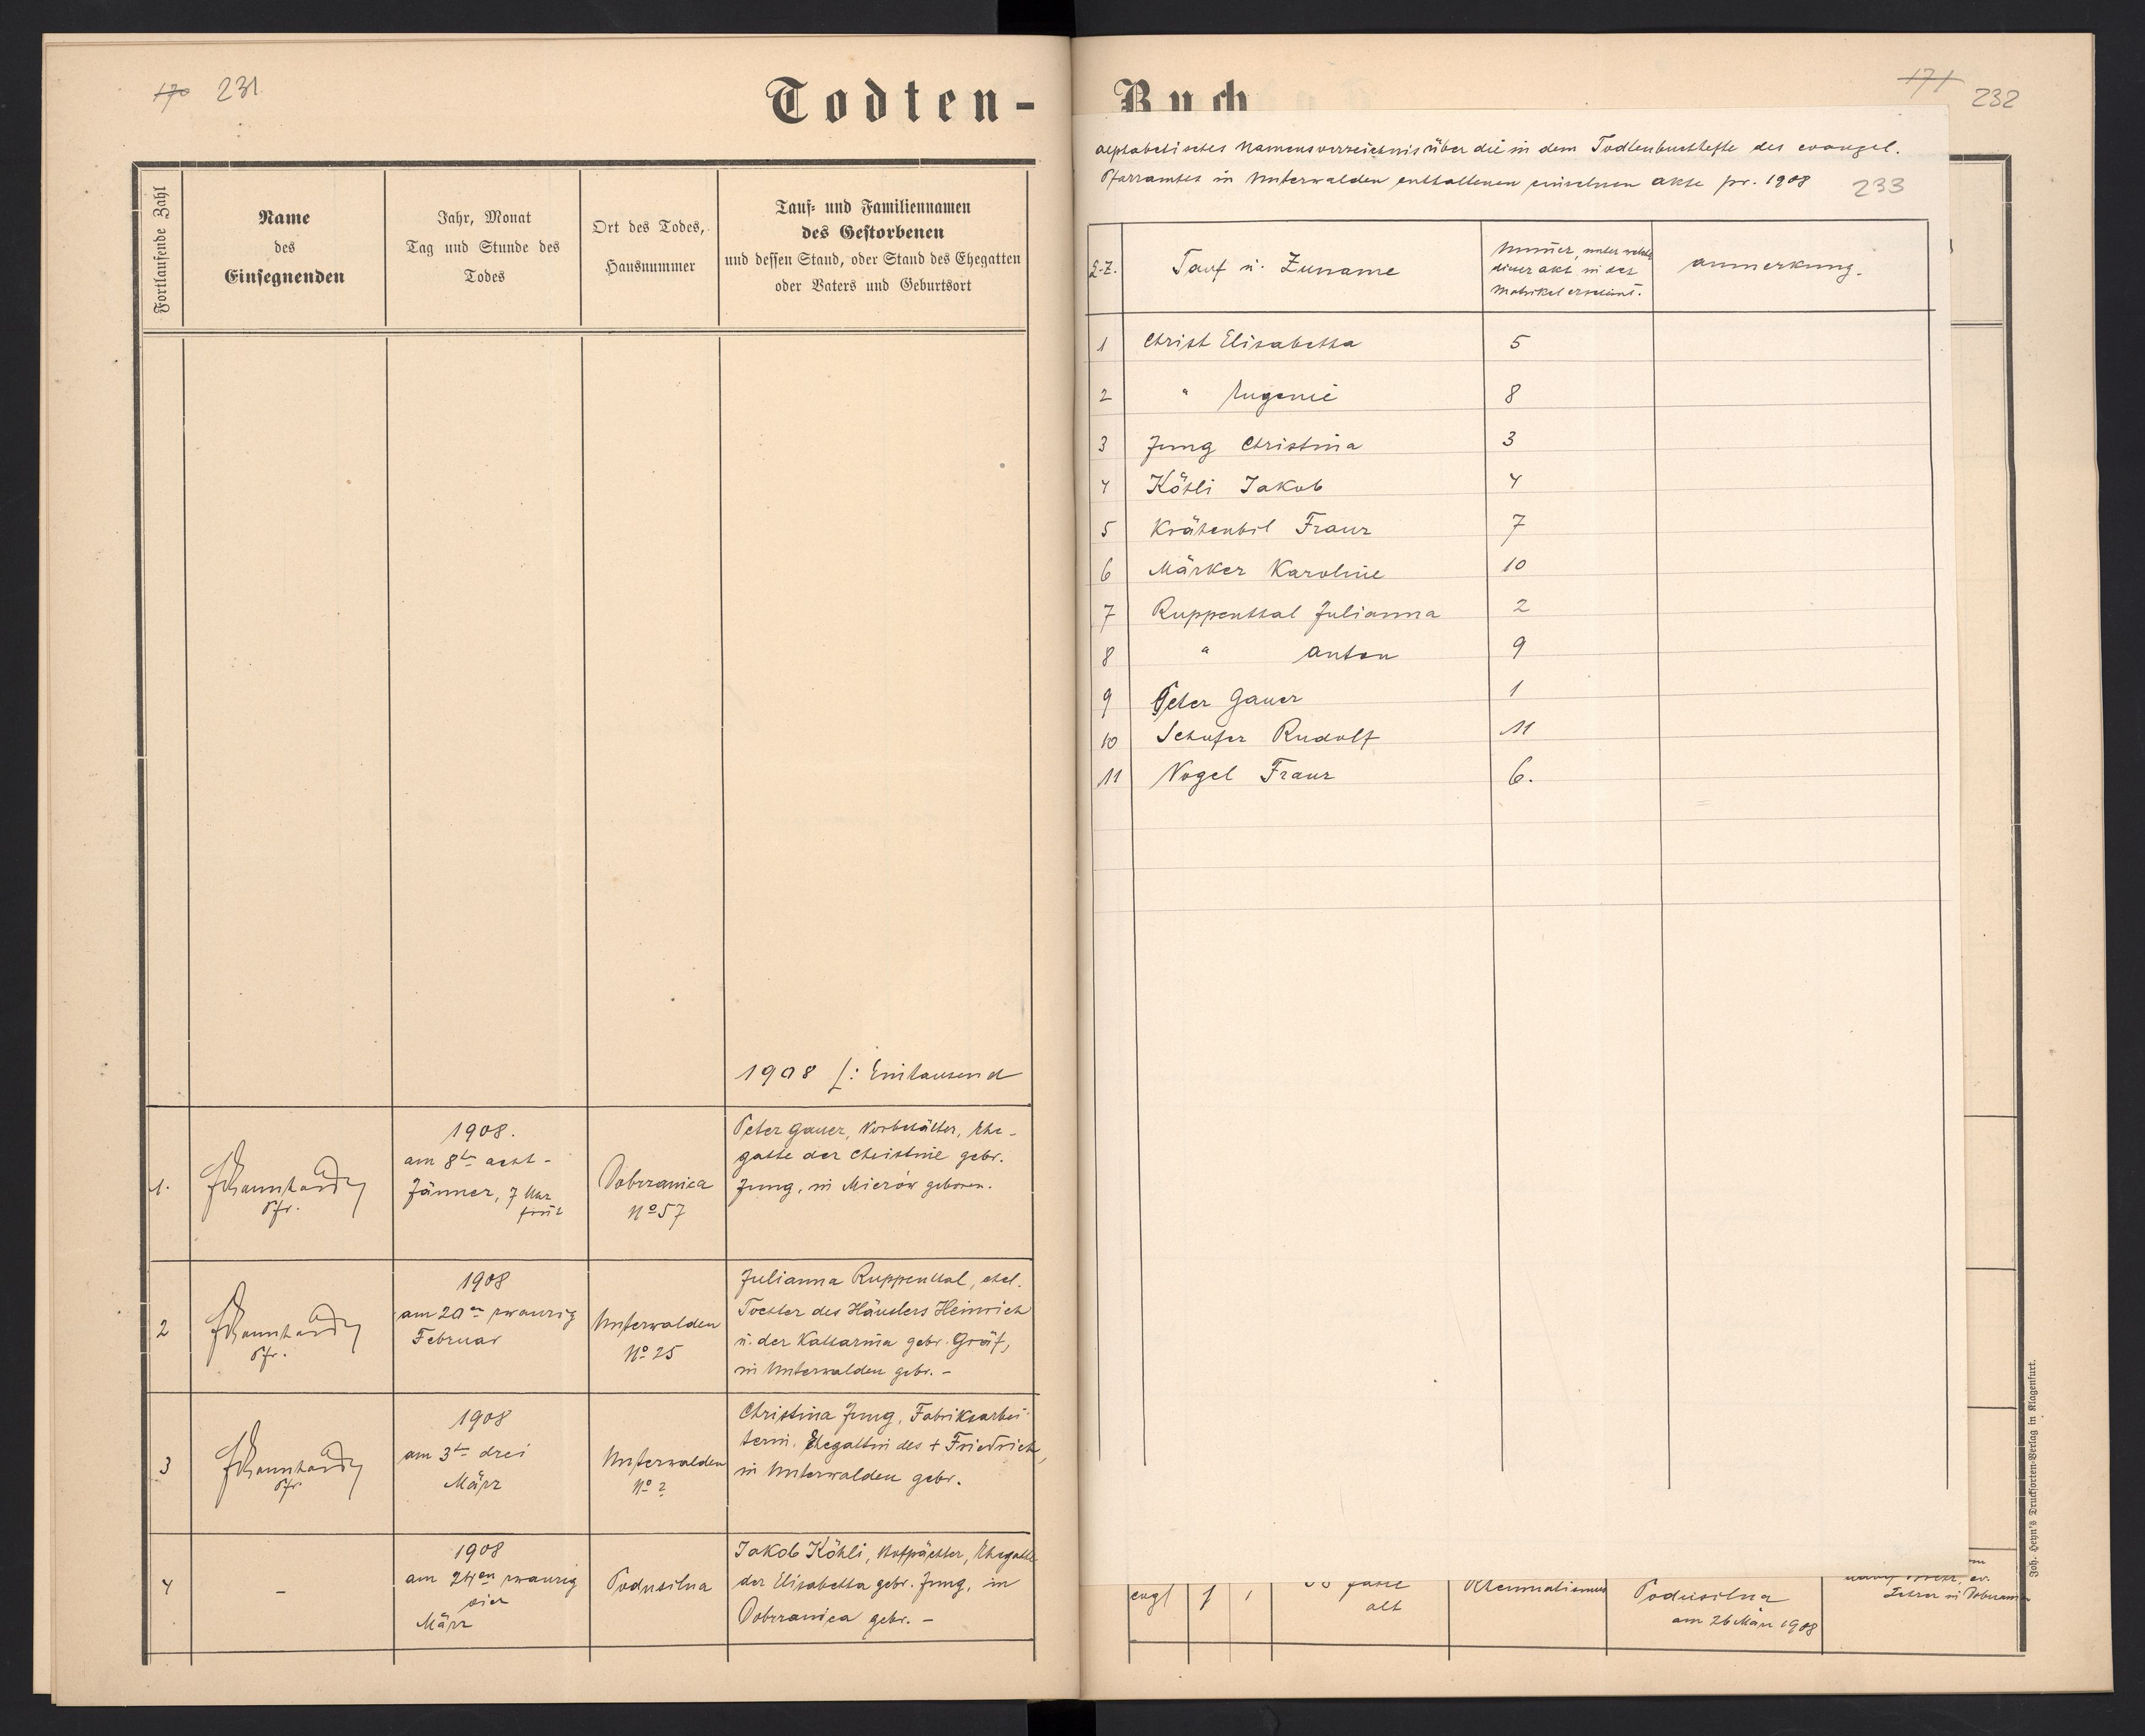 170 231
Todten-
Fortlaufende Zahl
Name
des
Einsegnenden
Jahr, Monat
Tag und Stunde des
Todes
Ort des Todes,
Hausnummer
Tauf- und Familiennamen
des Gestorbenen
und dessen Stand, oder Stand des Ehegatten
oder Vaters und Geburtsort
1908 /: Eintausend
1.
Pfr.
1908.
am 8ten acht-
Jänner, 7 Uhr
früh
Dobrzanica
No 57
Peter Gauer, Vorbehälter, Ehe-
gatte der Christine gebr.
Jung, in Mierów geboren.
2
Pfr.
1908
am 20en zwanzig
Februar
Unterwalden
No 25
Julianna Ruppenthal, ehel.
Tochter des Häuslers Heinrich
u. der Katharina gebr. Gräf,
in Unterwalden gebr. -
3
Pfr.
1908
am 3ten drei
März
Unterwalden
No 2
Christina Jung, Fabriksarbei-
terin, Ehegattin des + Friedrich,
in Unterwalden gebr.
4
-
1908
am 24en zwanzig
vier
März
Podusilna
Jakob Köhli, Hofpächter, Ehegatte
der Elisabetha gebr. Jung, in
Dobrzanica gebr. -
Buch
171 232
alphabetisches Namensverzeichnis über die in dem Todtenbuchhefte des evangel.
Pfarramtes in Unterwalden enthaltenen einzelnen Akte pr. 1908 233
L.-Z.
Tauf u. Zuname
Numer, unter welcher
dieser akt in der
Matrikel erscheint.
anmerkung.
1 Christ Elisabetha 5
2 " Eugenie 8
3 Jung Christina 3
4 Köhli Jakob 4
5 Krähenbil Franz 7
6 Märker Karoline 10
7 Ruppenthal Julianna 2
8 " Anton 9
9 Peter Gauer 1
10 Schufer Rudolf 11
11 Vogel Franz 6.
evgl 1 1
alt
Rheumatismus
Podusilna
am 26 März 1908
Joh. Heyn's Drucksorten-Verlag in Klagenfurt.